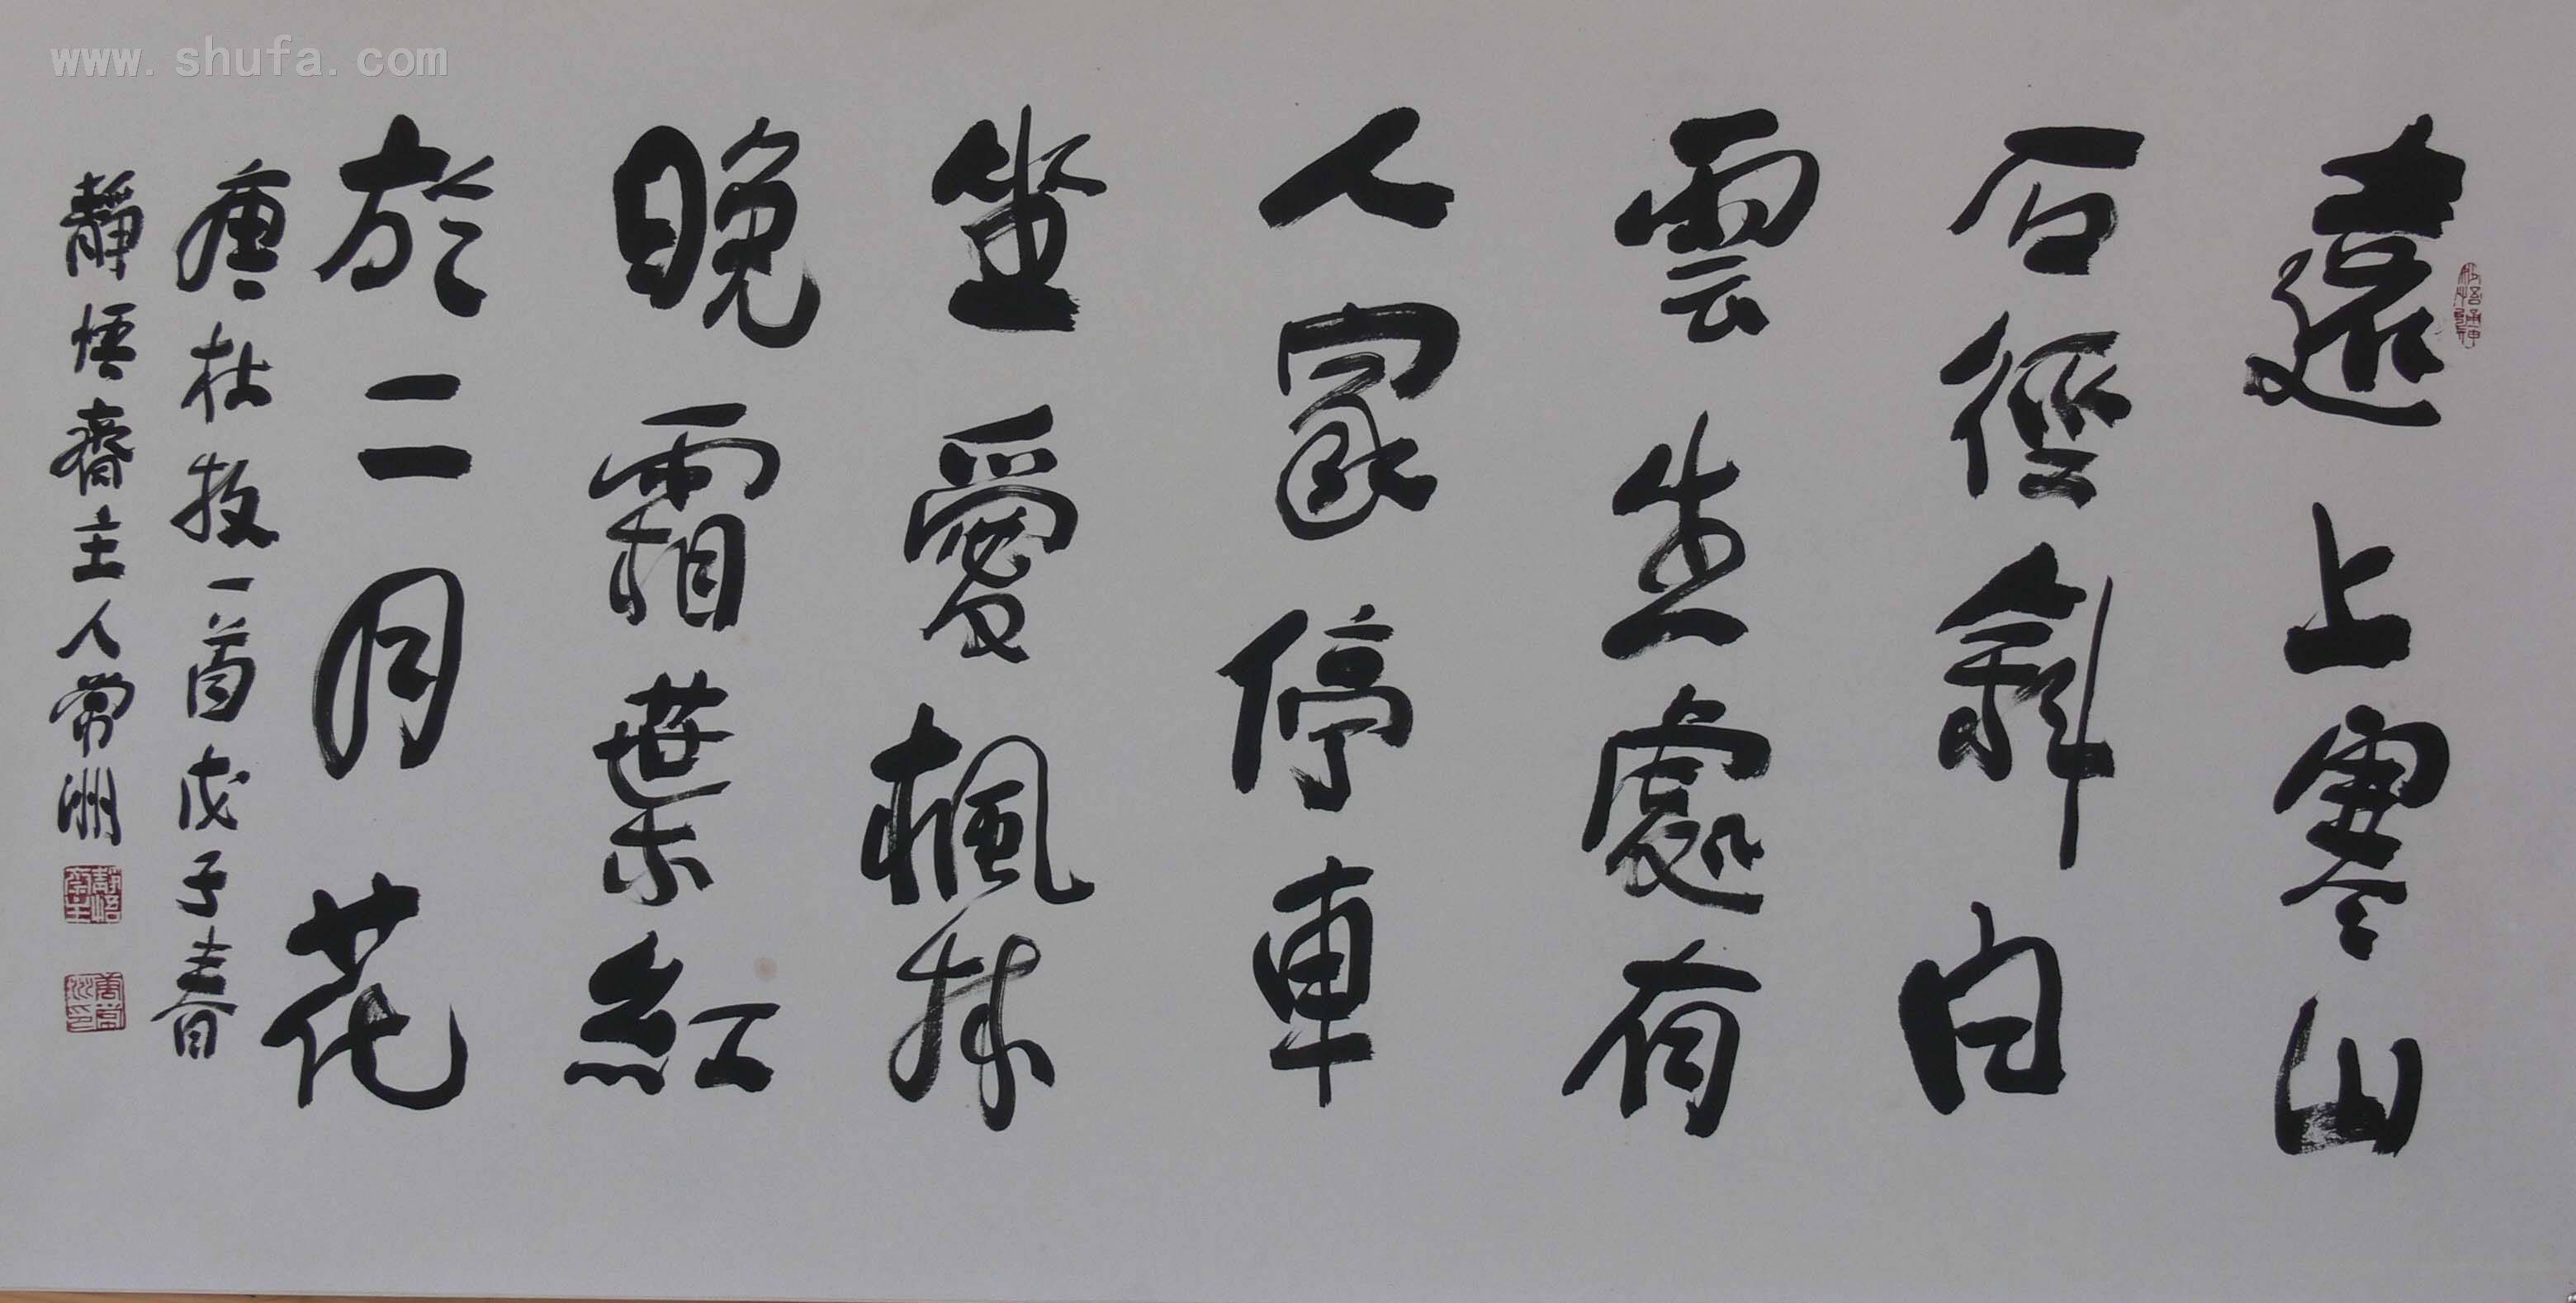 www.shufa.com
遠上寒山
石徑斜白
雲生處有
人家停車
坐愛楓林
晚霜葉紅
於二月花
唐杜牧一首戊子春
靜悟齋主人常洲
靜悟齋主